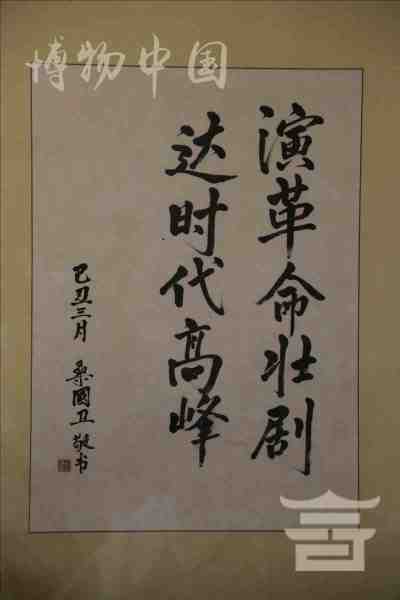 博物中国
演革命壮剧
达时代高峰
己丑三月 桑国卫敬书